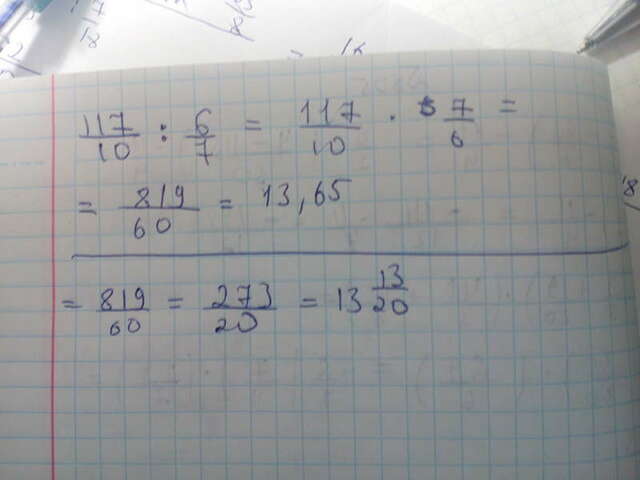 117/10 : 6/7 = 117/10 · 7/6 =
= 819/60 = 13,65
= 819/60 = 273/20 = 13 13/20